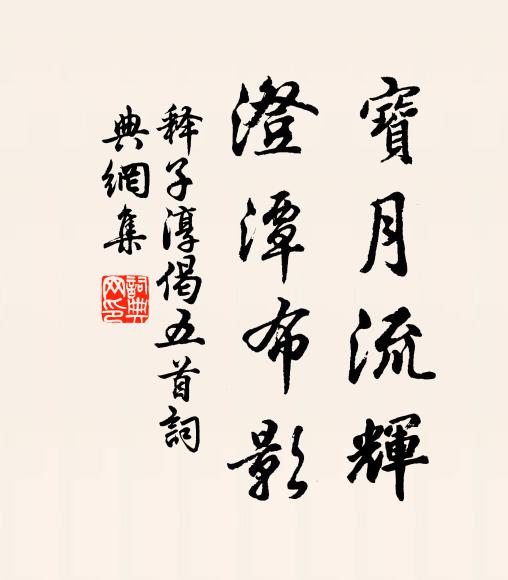 寶月流輝
澄潭布影
释子淳偈五首詞
典網集
詞典
网印